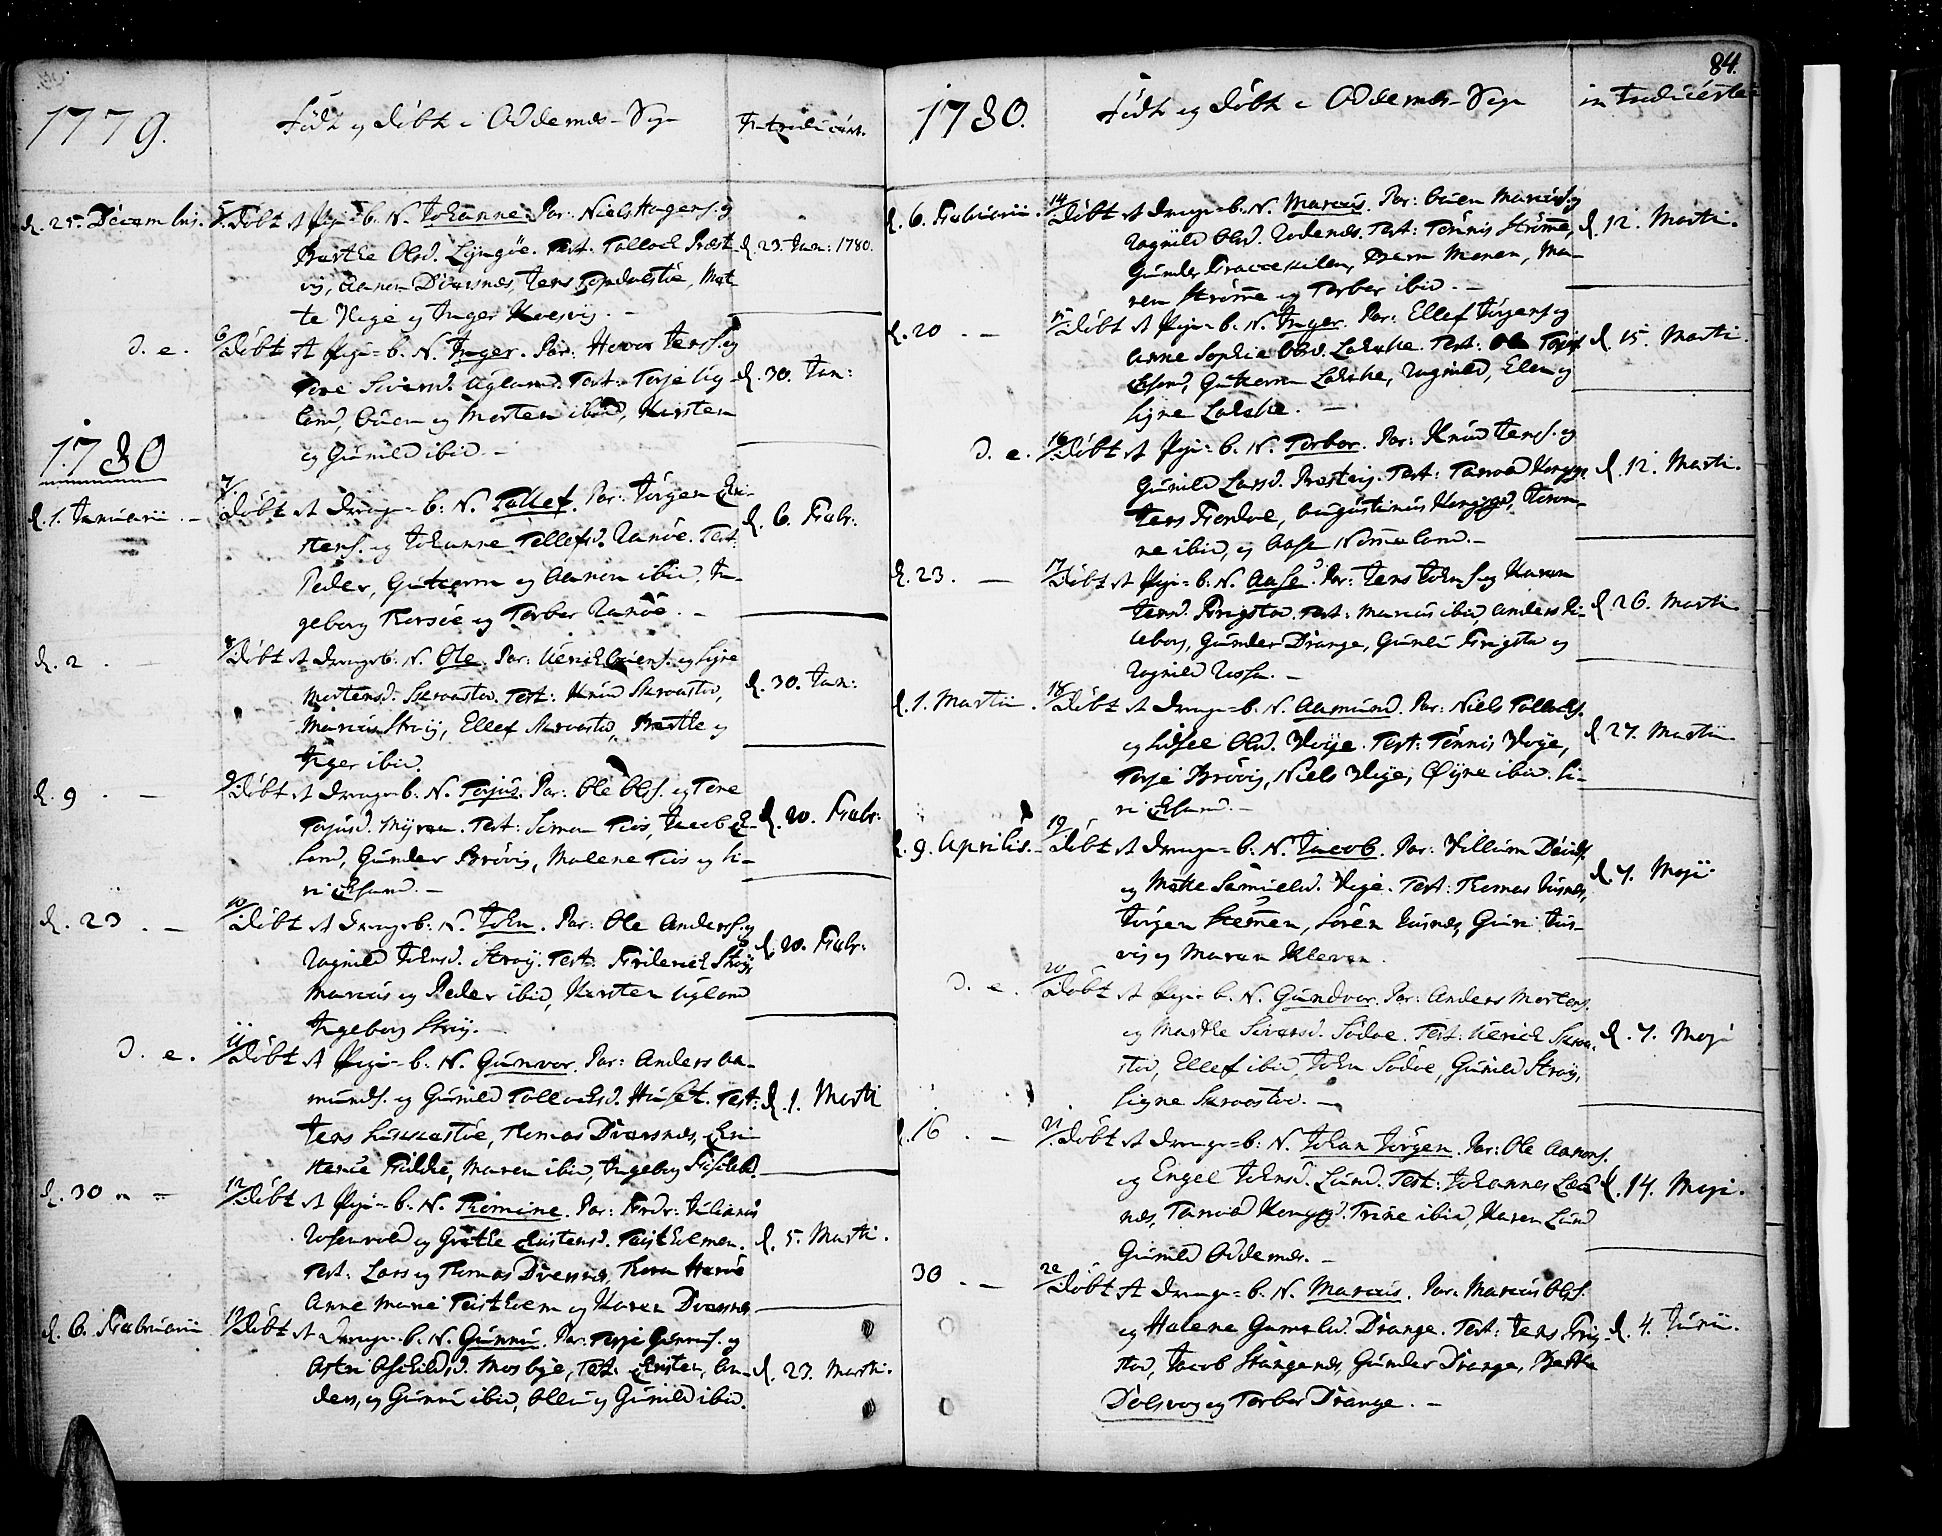 84.
1779.
Født og Døbt i Oddernes-Sogn
Introduceret.
d. 25. Decembris. 5. Døbt et Pige-b. N. Johanne. Par: Niels Hagens. og
Berthe Olsd. Lyngøe. Test. Tallock Præst-
vig, Aanen Dversnes, Jens
te Vige og Inger
d. 23. Jan: 1780.
d. e. 6 Døbt et Pige-b. N. Inger. Par: Hover Jens. og
Tore Siversd. Ugland. Test. Terje Ug-
land, Ouen og Morten ibid, Kirsten
og Gunild ibid. -
d. 30. Jan:
1780
d. 1. Januarii - 7. Døbt et Drenge-b. N. Tollef. Par: Jørgen Chri-
stens. og Johanne Tellefsd. Randøe. Test:
Peder, Guttorm og Aanon ibid, In-
geborg Korsøe og Torber Randøe. -
d. 6. Febr:
d. 2. - 8 Døbt et Drengeb. N. Ole. Par: Ulrich Ouens. og Signe
Mortensd. Skraastad. Test: Knud Skraastad,
Marcus Straij, Ellef Skraastad, Berthe og
Inger ibid.
d. 30. Jan:
d. 9. - 9 Døbt et Drenge-b. N. Terjus. Par: Ole Ols. og Tore
Terjusd. Myren. Test: Simon Fies, Jacob E-
land, Gunder Brøvig, Malene Fies og Si-
ri Egsund. -
d. 20. Febr:
d. 23. - 10 Døbt et Drengeb. N. John. Par: Ole Anders. og
Ragnild Johnsd. Straij. Test: Friderich Straij,
Marcus og Peder ibid, Kirsten Ugland
Ingeborg Straij. -
d. 20. Febr:
d. e. 11 Døbt et Pige-b. N. Gunvor. Par: Anders Aa-
munds. og Gunild Tallacksd. Huset. Test:
Jens Luckestøe, Thomas Dversnes, Chri-
stence Fidkke, Maren ibid, Ingeborg
d. 1. Marti
d. 30 - 12 Døbt et Pige-b. N. Thomine. Par: Fredr: Julianus
Rosenvold og Grethe Christensd. Teistholmen.
Test: Lars og Thomas Dversnes, Thora Herøe
Anne Marie Teistholm og Karen Dversnes
d. 5. Marti.
d. 6. Februarii 13 Døbt et Drenge-b. N. Gunnu. Par. Terje Gunnus. og
Asten Aschildsd. Mosbye, Test. Christen, An-
ders, og Gunnu ibid, Olli og Gunild ibid.
d. 23. Marti.
1780.
Født og Døbt i Oddernes-Sogn
introduceret
d. 6. Februarii. 14 Døbt et Drenge-b. N. Marcus. Par: Ouen Marcus. og
Ragnild Olsd. Rodenes. Test: Tønnis Strømme,
Gunder Kraagekilen, Bern Meneen, Ma-
ren Strømme og Torber ibid. -
d. 12. Marti.
d. 20. - 15 Døbt et Pige-b. N. Inger. Par: Ellef Jørgens. og
Anne Sophie Olsd. Lahelle. Test: Terje
Egsund, Guttorm Lahelle, Ragnild, Elen og
Signe Lahelle. -
d. 15. Marti.
d. e. 16 Døbt et Pige-b. N. Torber. Par: Knud Jens. og
Gunild Larsd. Præstvig. Test: Tarald Kongsg.
Jens Frondøe, Augustinus Kongsgd, Jerom-
ne ibid, og Aase Nomeland. -
d. 12. Marti.
d. 23. - 17 Døbt et Pige-b. N. Aase. Par: Jens Johns. og Karen
Jensd. Frigstad. Test: Marcus ibid, Anders Li-
leborg, Gunder Drange, Gunil Frigstad og
Ragnild Rossa. -
d. 26. Marti.
d. 1. Martii. 18 Døbt et Drenge-b. N. Aamund. Par: Niels Tallacks.
og Lidsee Olsd. Voije. Test: Tønnis Voije,
Terje Brøvig, Niels Voije, Øyne ibid. Si-
ri Egsund. -
d. 27. Marti.
d. 9. Aprilis. - 19 Døbt et Drenge-b. N. Jacob. Par: Villum Davids.
og Mette Samuelsd. Vige. Test: Thomas Kusnes,
Jørgen Stemmen, Søren Kusnes, Guri Jus-
vig og Maren Kleven.
d. 7. Maji.
d. e. 20 Døbt et Pige-b. N. Gundvor. Par: Anders Mortens.
og Marthe Siversd. Sødve. Test: Ulerich Skraa-
stad, Ellef ibid, John Sødve, Gunild Straij,
Signe Skraastad. -
d. 7. Maji
d. 16. - 21 Døbt et Drenge-b. N. Johan Jørgen. Par: Ole Aanons.
og Engel Johnsd. Lund. Test: Johannes Lad
nes, Tarald Kongsgd. Trine ibid, Karen Lund
Gunild Oddernes. -
d. 14. Maji.
30. - 22 Døbt et Drenge-b. N. Marcus. Par: Marcus Ols.
og Malene Gumsd. Drange. Test: Jens Frig-
stad, Jacob Stangenes, Gunder Drange, Berthe
Dolsvog og Torber Drange. -
d. 4. Junii.